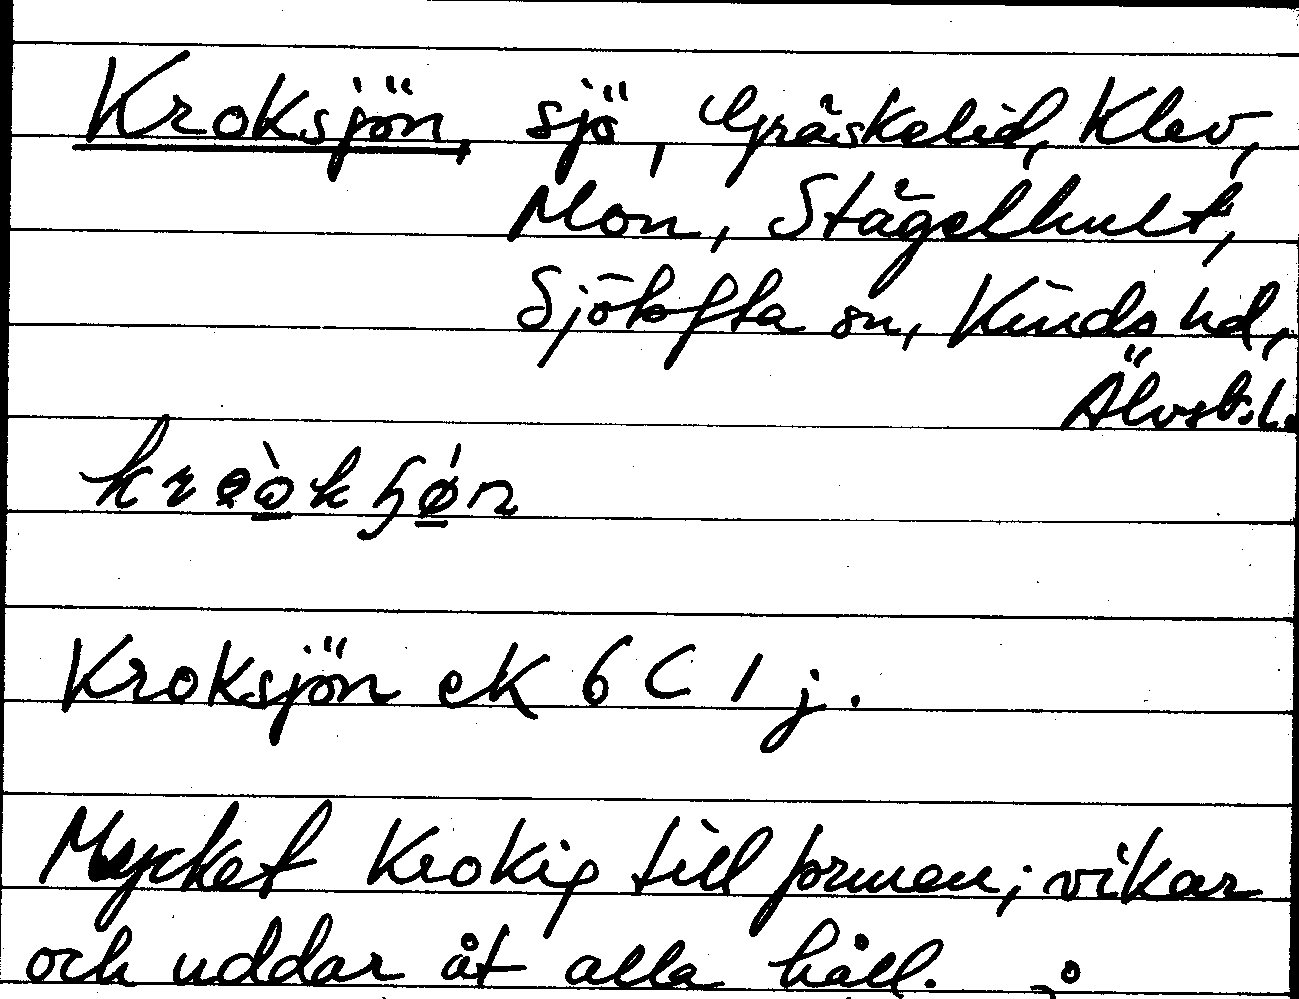 Kroksjön, sjö, Gräskelid, Klev,
Mon, Stågelhult,
Sjötofta sn, Kinds hd,
Älvsb. l.
Kroksjön ek 6 C 1 j.
Mycket krokig till formen; vikar
och uddar åt alla håll.